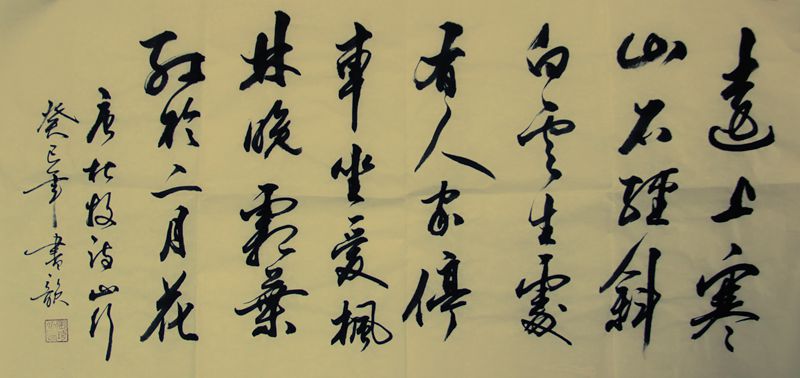 遠上寒
山石經斜
白雲生處
有人家停
車坐愛楓
林晚霜葉
紅於二月花
唐杜牧詩山行
癸巳年書韻